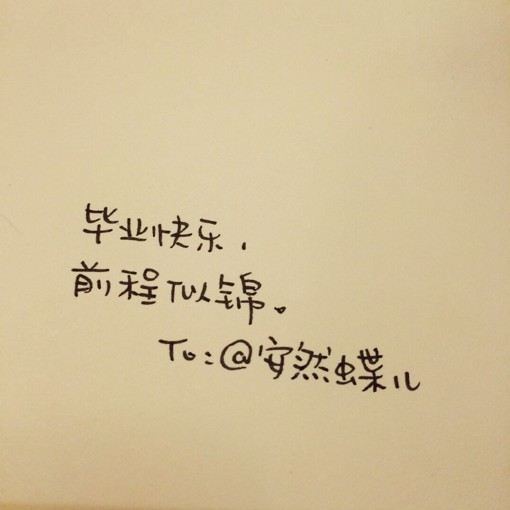 毕业快乐，
前程似锦。
To:@安然蝶儿